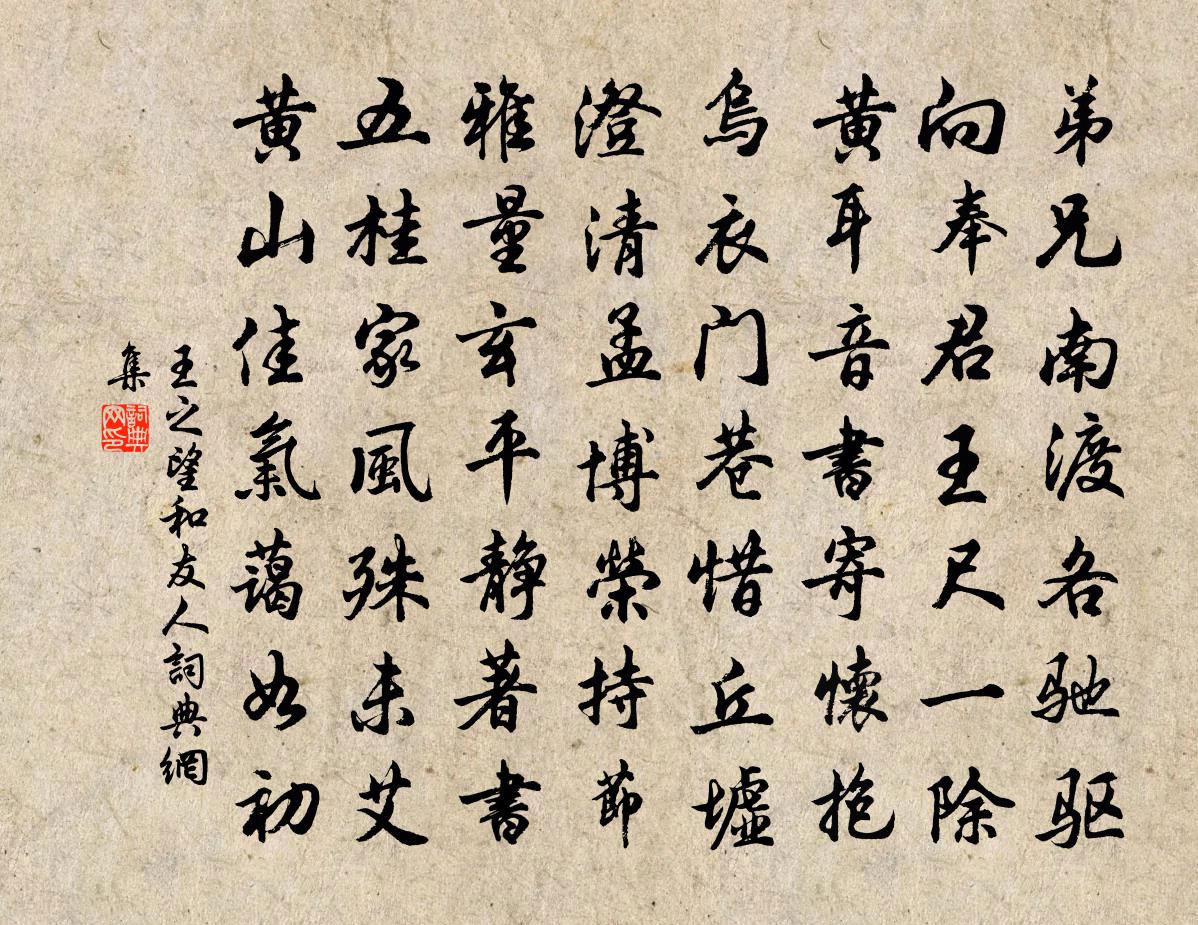 弟兄南渡各驰驱
向奉君王尺一除
黄耳音書寄懷抱
烏衣门巷惜丘墟
澄清孟博榮持節
雅量玄平静著書
五桂家風殊未艾
黄山佳氣藹如初
王之望和友人詞典網
集
詞典网印